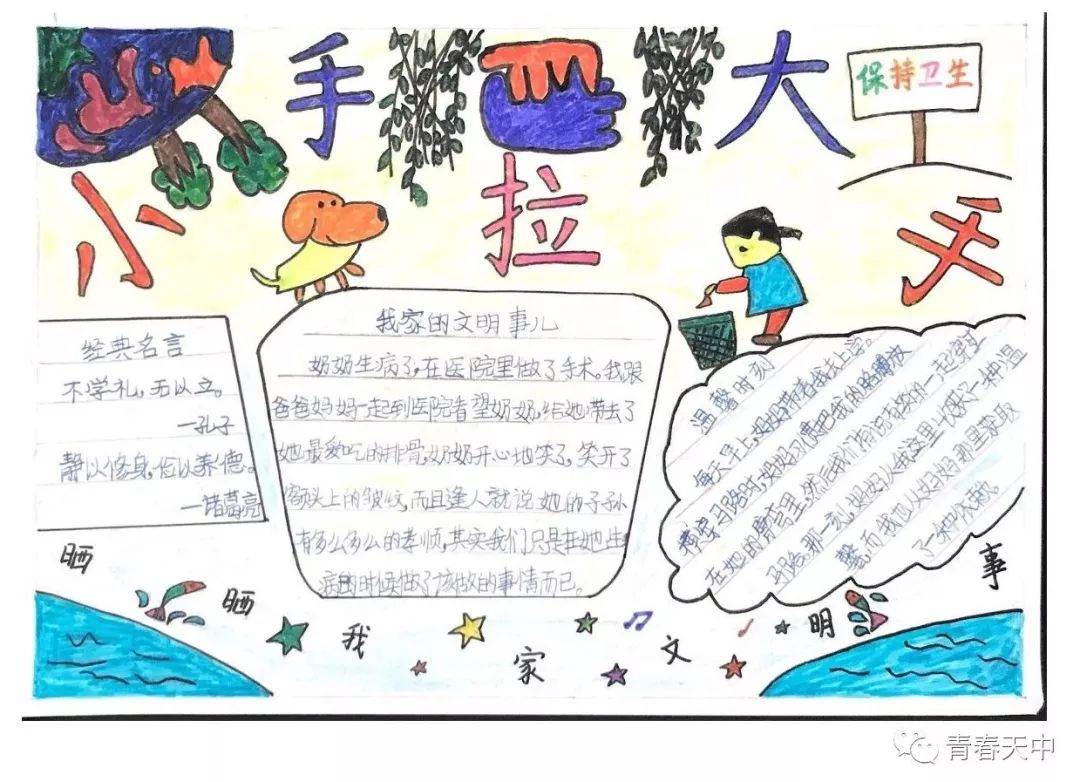 小手拉大手
保持卫生
经典名言
不学礼,无以立。
—孔子
静以修身,俭以养德。
—诸葛亮
我家的文明事儿
奶奶生病了,在医院里做了手术。我跟
爸爸妈妈一起到医院看望奶奶,给她带去了
她最爱吃的排骨,奶奶开心地笑了,笑开了
额头上的皱纹,而且逢人就说她的子孙
有多么多么的孝顺,其实我们只是在她生
病的时候做了该做的事情而已。
温馨时刻
每天早上,妈妈带着我去上学。
需要穿马路时,妈妈习惯把我的胳膊放
在她的臂弯里,然后我们有说有笑的一起穿过
马路。那一刻,妈妈从我这里收获了一种温
馨,而我也从妈妈那里获取
了一种
晒晒我家文明事
青春天中